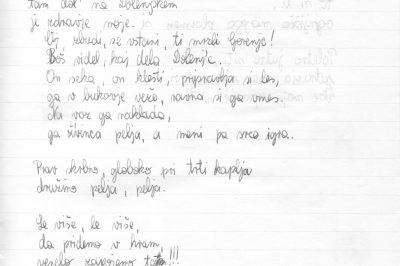 tam dol' na Dolenjskem
ji zdravje moje.
Oj, zbudi se, vstani, ti mrzli Gorenjc!
Boš videl, kaj dela Dolenjc.
On seka, on klesti, pripravlja si les,
ga v bukovje veže, ravna si ga vmes.
Na voz ga naklada,
ga živinca pelja, a meni pa srce igra.
Prav skrbno, globoko pri trti kaplja
družino pelja, pelja.
Le više, le više,
da pridemo v hram,
veselo zapojemo !!!